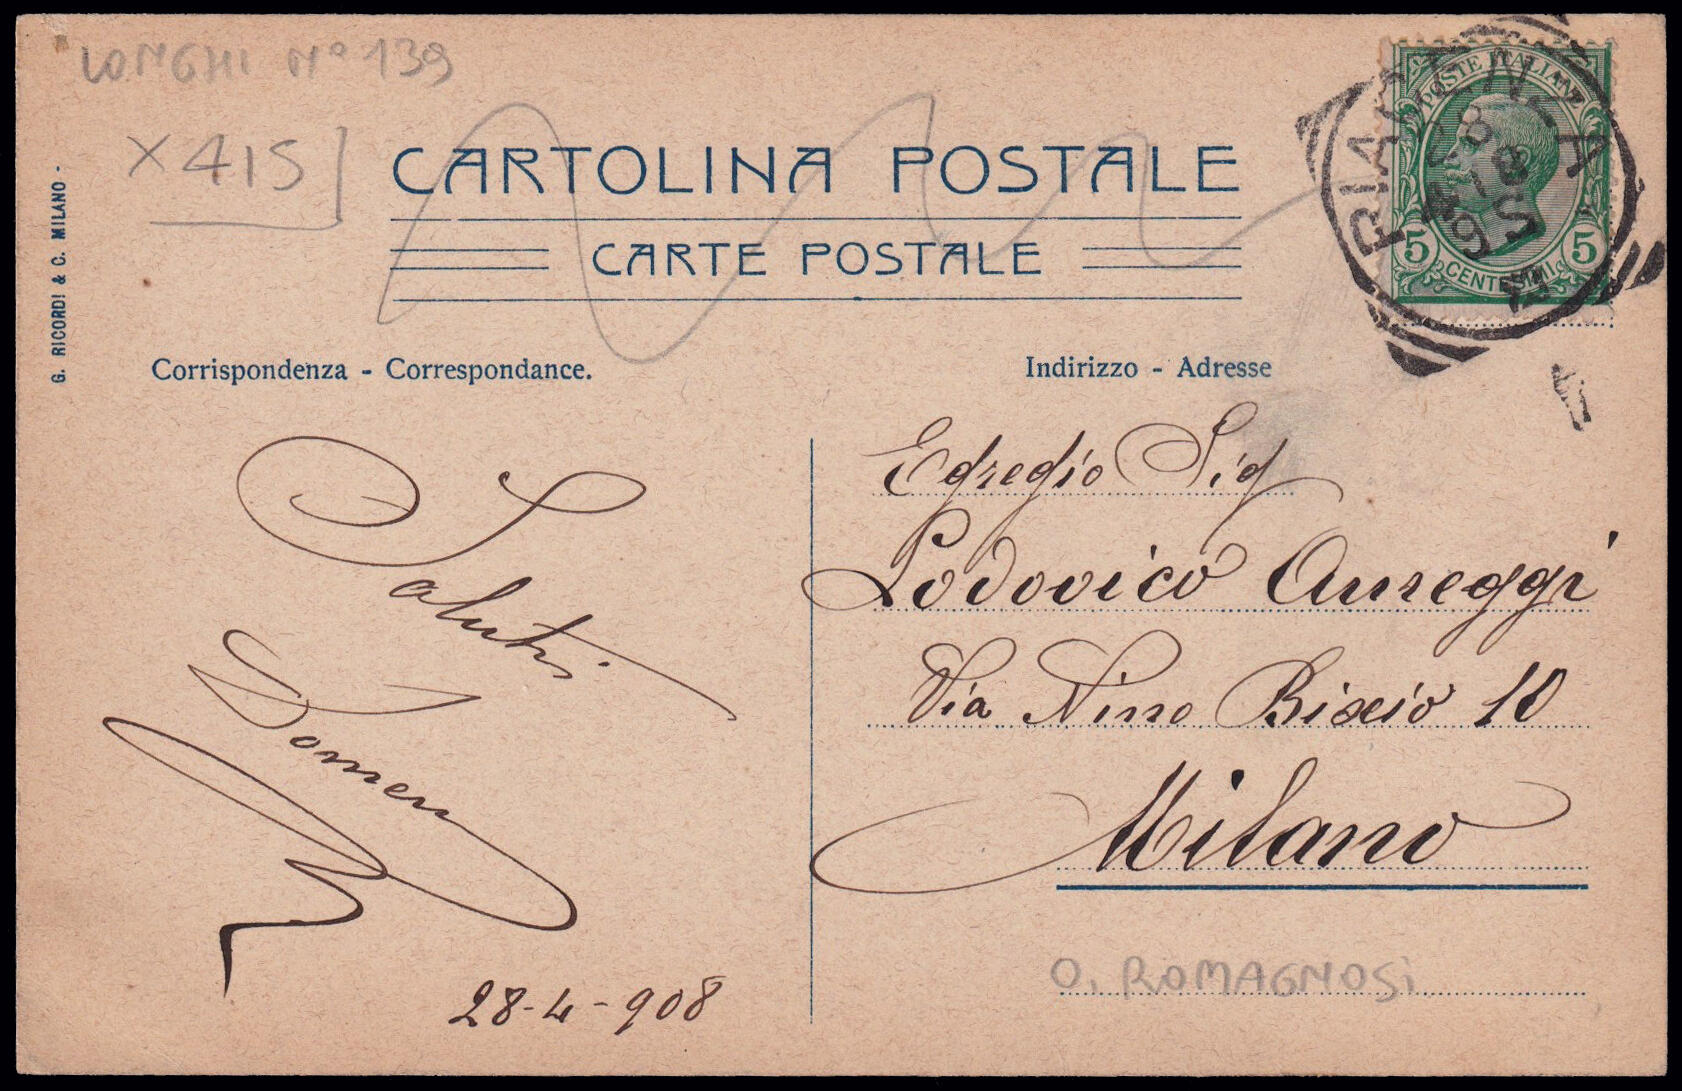 LONGHI Nº 139
X 415
G. RICORDI & C. MILANO -
CARTOLINA POSTALE
CARTE POSTALE
POSTE ITALIANE
5 5
CENTESIMI
PIACENZA
Corrispondenza - Correspondance.
Indirizzo - Adresse
Saluti
28-4-908
Egregio Sig
Lodovico
Via Nino Bixio 10
Milano
O. ROMAGNOSI